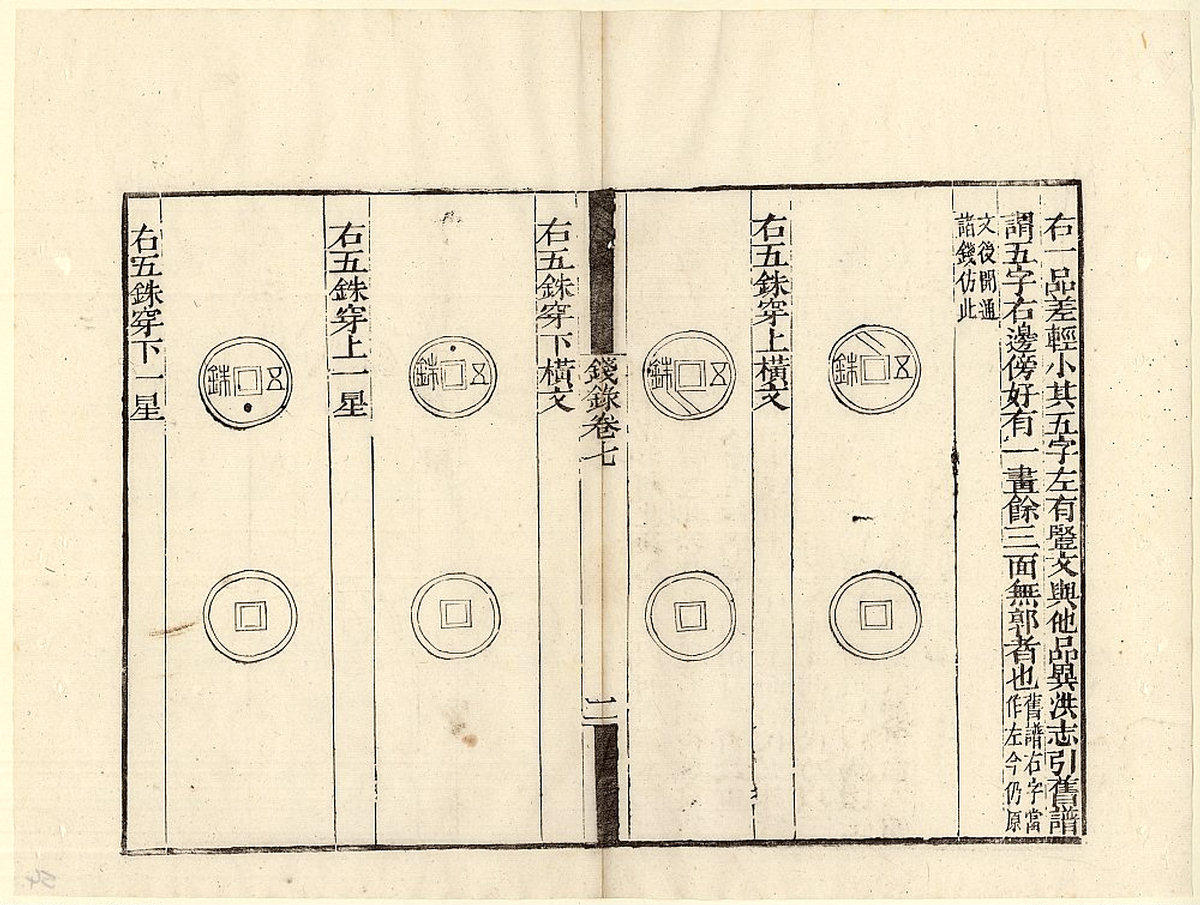 右一品差輕小其五字左有豎文與他品異洪志引舊譜
謂五字右邊傍好有一畫餘三面無郭者也舊譜右字當
作左今仍原
文後開通
諸錢仿此
五銖
右五銖穿上橫文
五銖
錢錄卷七
二
右五銖穿下橫文
五銖
右五銖穿上一星
五銖
右五銖穿下一星
54